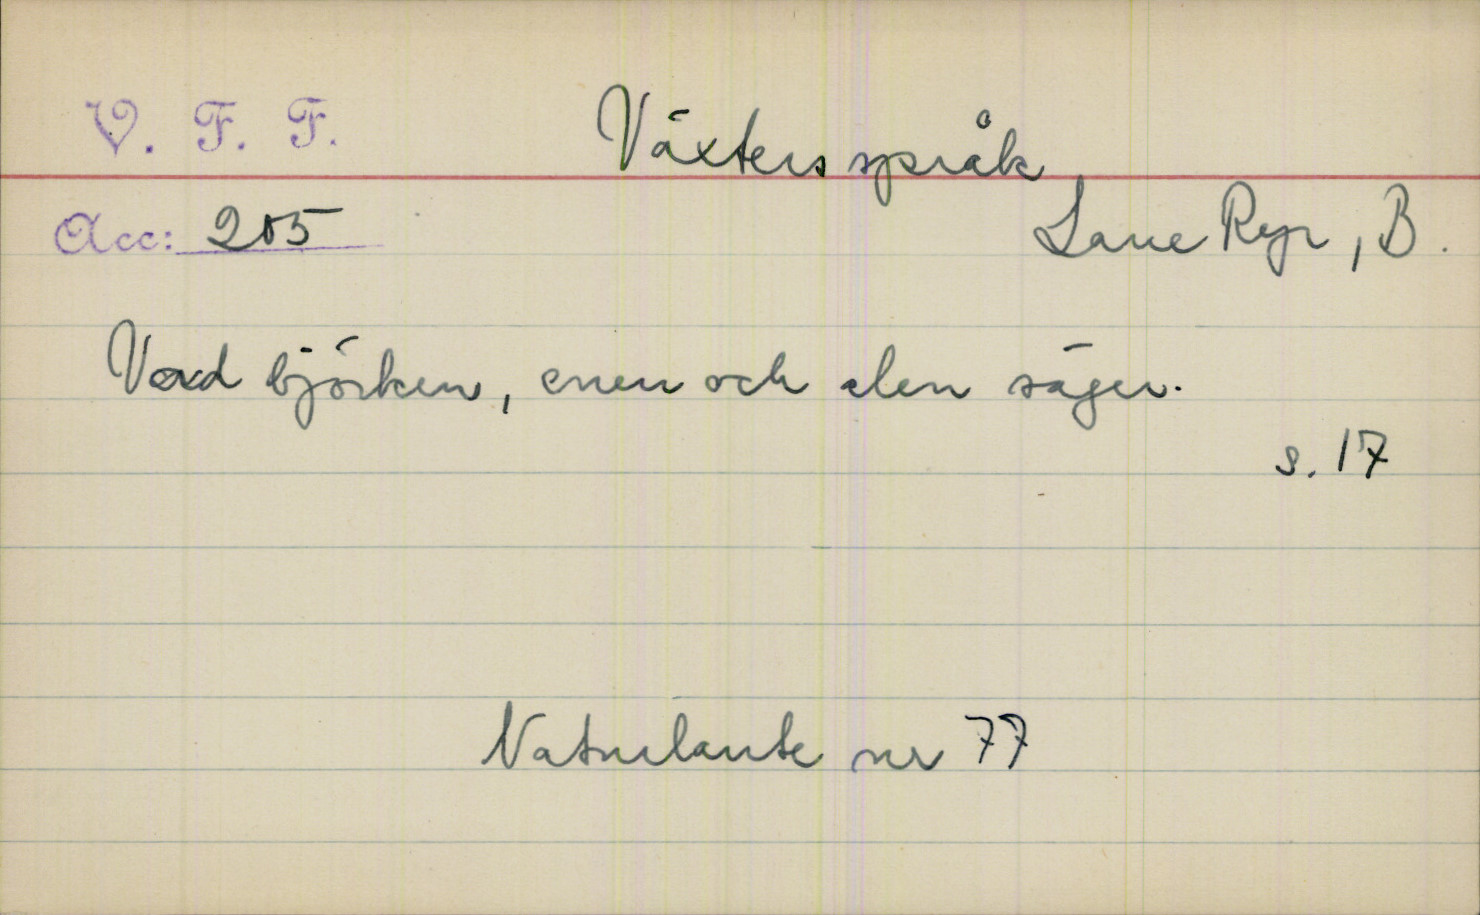 V. F. F.
Växters språk
Acc: 205
Lane Ryr, B.
Vad björken, enen och alen säger.
s. 17
Naturlaute nr 77